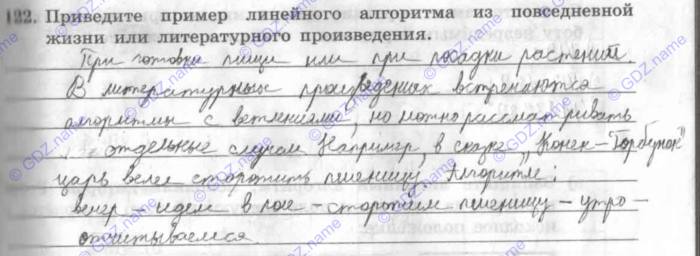 122. Приведите пример линейного алгоритма из повседневной
жизни или литературного произведения.
При готовки пищи или при посадки растений.
В литературных произведениях встречаются
алгоритмы с ветвлениями, но можно рассматривать
отдельные случаи. Например, в сказке „Конек-Горбунок"
царь велел сторожить пшеницу. Алгоритм:
вечер – идем в поле – сторожим пшеницу – утро –
отчитываемся.
© GDZ.name